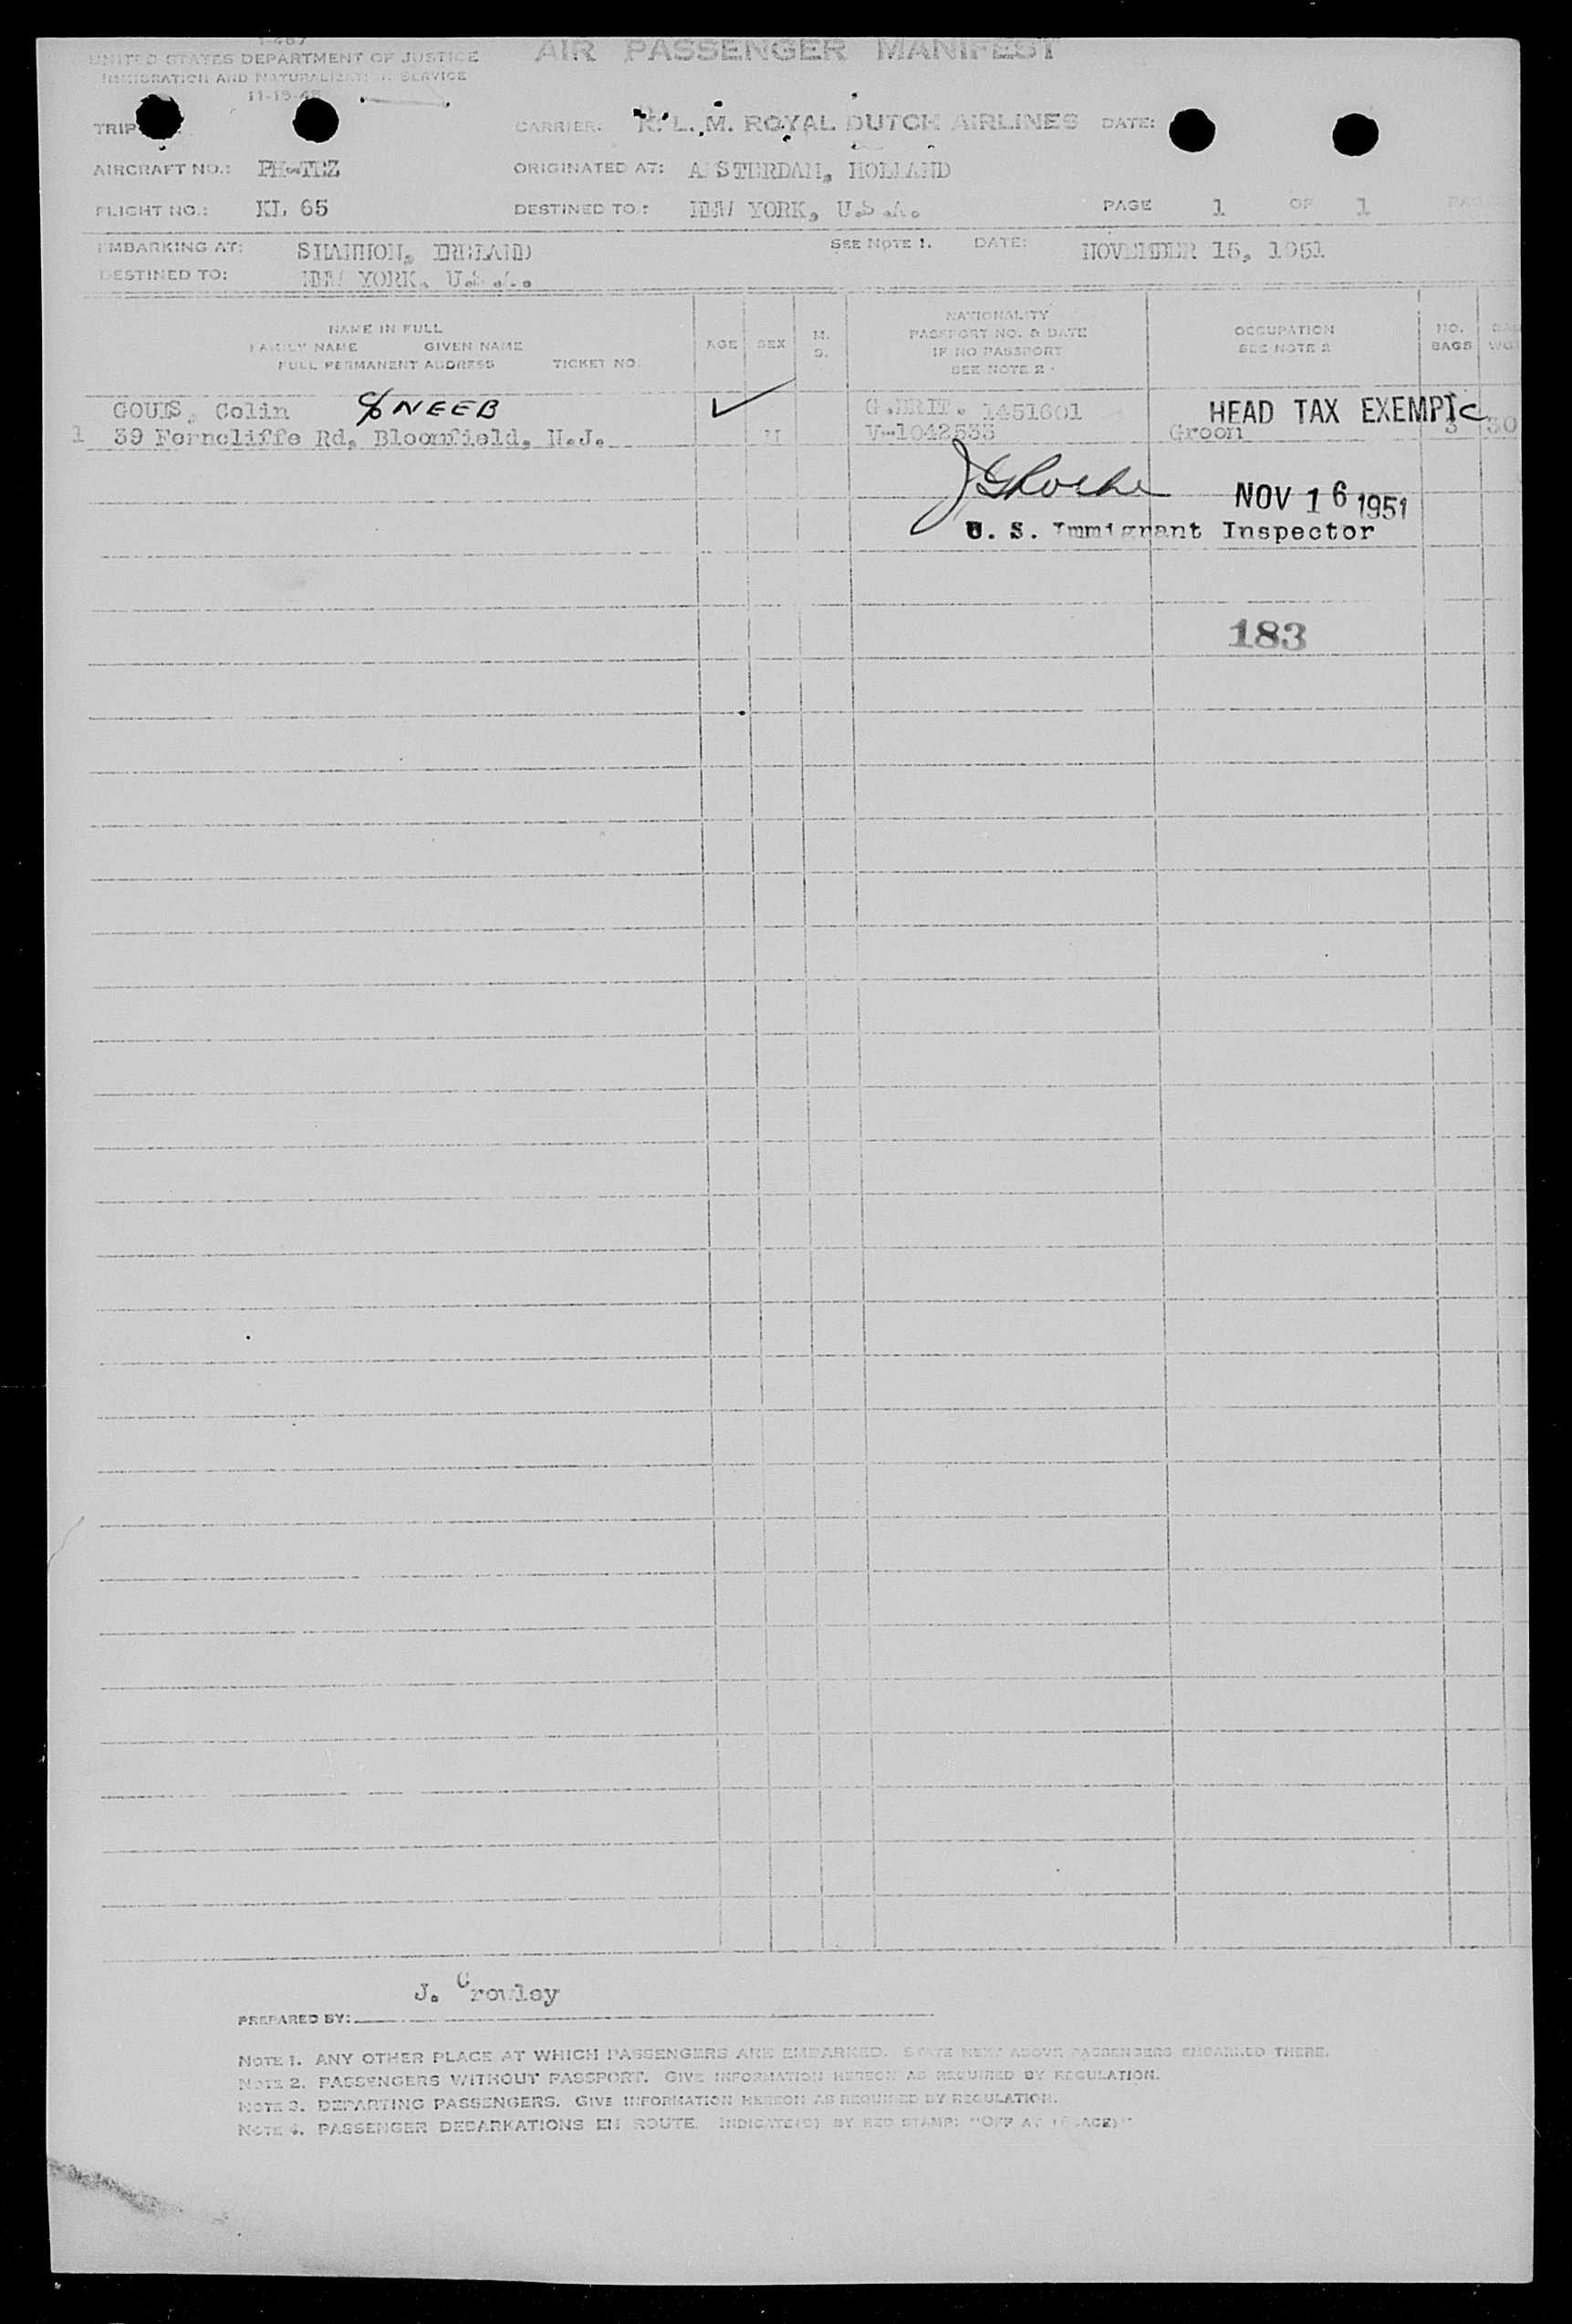 I-487
UNITED STATES DEPARTMENT OF JUSTICE
IMMIGRATION AND NATURALIZATION SERVICE
11-15-48
AIR PASSENGER MANIFEST
TRIP
CARRIER: K. L. M. ROYAL DUTCH AIRLINES DATE:
AIRCRAFT NO.: PH-TEZ ORIGINATED AT: AMSTERDAM, HOLLAND
FLIGHT NO.: KL 65 DESTINED TO: NEW YORK, U.S.A. PAGE 1 OF 1
EMBARKING AT: SHANNON, IRELAND SEE NOTE 1. DATE: NOVEMBER 15, 1951
DESTINED TO: NEW YORK, U.S.A.
NAME IN FULL
FAMILY NAME GIVEN NAME
FULL PERMANENT ADDRESS TICKET NO.
AGE
SEX
M.
S.
NATIONALITY
PASSPORT NO. & DATE
IF NO PASSPORT
SEE NOTE 2
OCCUPATION
SEE NOTE 2
NO.
BAGS
Colin c/o NEEB G.BRIT. 1451601 HEAD TAX EXEMPT
1 39 Forncliffe Rd, Bloomfield, N.J. M V-1042533 Groom 3 30
NOV 16 1951
U. S. Immigrant Inspector
183
J. Crowley
PREPARED BY:
NOTE 1. ANY OTHER PLACE AT WHICH PASSENGERS ARE EMBARKED. STATE NEXT ABOVE PASSENGERS EMBARKED THERE.
NOTE 2. PASSENGERS WITHOUT PASSPORT. GIVE INFORMATION HEREON AS REQUIRED BY REGULATION.
NOTE 3. DEPARTING PASSENGERS. GIVE INFORMATION HEREON AS REQUIRED BY REGULATION.
NOTE 4. PASSENGER DEBARKATIONS EN ROUTE. INDICATE(D) BY RED STAMP: "OFF AT (PLACE)"